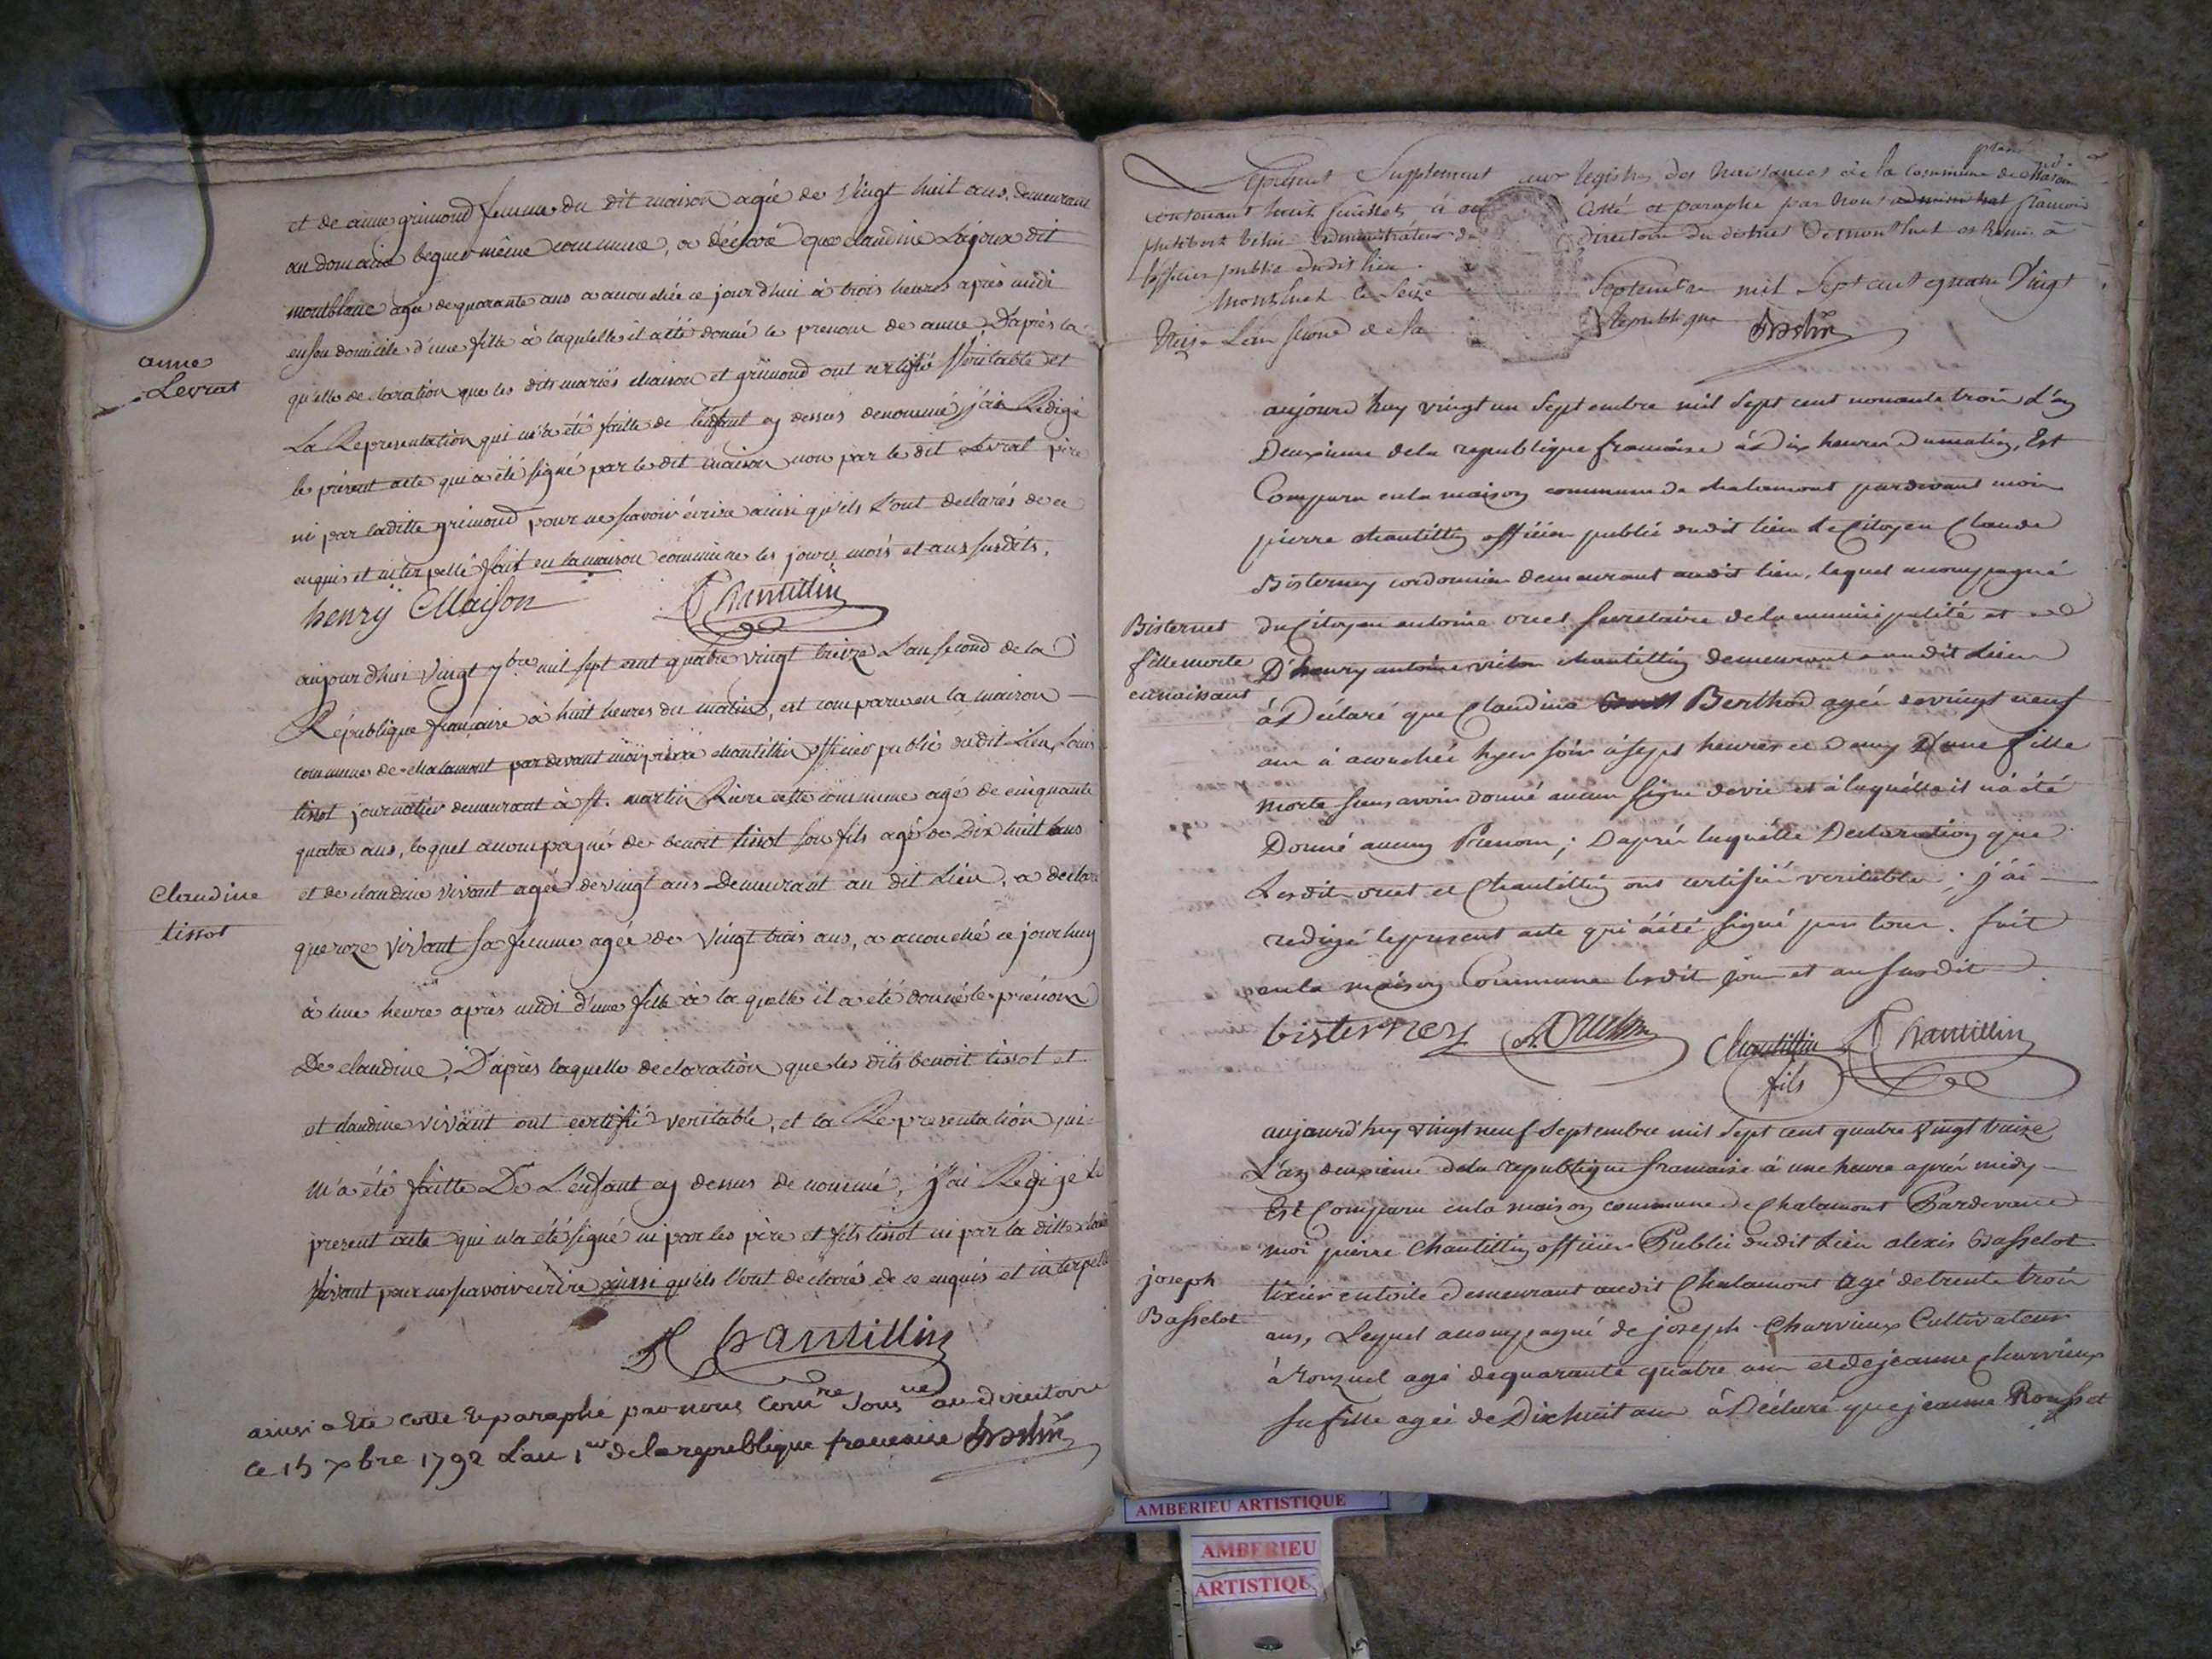 et de anne grimoud femme du dit maison agée de Vingt huit ans, demeurant
au domaine beguer même commune, a déclaré que claudine Lajoux dit
montblanc agée de quarante ans a accouchée ce jourd'hui à trois heures après midi
en son domicile d'une fille à laquelle il a été donné le prenom de anne, D'après la
qu'elle declaration que les dits mariés maison et grimoud ont certifié Veritable et
La Representation qui m'a été faitte de l'enfant cy dessus denommé, j'ai Redigé
le présent acte qui a été signé par le dit maison non par le dit Levrat père
ni par laditte grimoud pour ne scavoir écrire ainsi qu'ils l'ont declarés de ce
enquis et interpellé fait en la maison commune les jours mois et ans susdits.
anne
Levrat
henry Maison Chantillin
aujourd'hui Vingt 7bre mil sept cent quatre vingt treize L'an second de la
République française à huit heures du matin, est comparu en la maison
commune de chalamont pardevant moi pierre chantillin officier public dudit Lieu, Louis
tissot journalier demeurant à st. martin Riere cette commune agé de cinquante
quatre ans, lequel accompagné de benoit tissot son fils agé de Dix huit ans
et de claudine vivant agée de vingt ans Demeurant au dit Lieu, a declaré
que roze vivant sa femme agée de Vingt trois ans, a accouché ce jourd'huy
à une heure après midi d'une fille à la quelle il a été donné le prénom
De claudine, D'après laquelle declaration que les dits benoit tissot et
et claudine vivant ont certifié veritable, et la Representation qui
m'a été faitte De L'enfant cy dessus denommé, j'ai Redigé le
present acte qui n'a été signé ni par les père et fils tissot ni par la ditte
vivant pour ne scavoir ecrire ainsi qu'ils l'ont declarés de ce enquis et interpellé
Claudine
tissot
Chantillin
ainsi a été cotte et paraphé par nous Comre sousne au directoire
ce 15 xbre 1792 L'an 1er de la republique francaise
Le présent Supplement aux Registres des Naissances de la Commune de
contenant huit feuillets à été Cotté et paraphé par Nous françois
philibert administrateur du directoire du district De montluel et Remis à
l'officier public dudit lieu.
Montluel le Seize Septembre mil Sept cent quatre Vingt
treize L'an second de la Republique
aujourd'huy vingt un Septembre mil Sept cent nonante trois L'an
Deuxieme de la republique francoise à Dix heures du matin, Est
Comparu en la maison commune de chalamont pardevant moi
pierre chantillin officier public dudit lieu Le Citoyen Claude
Bisterney cordonnier demeurant audit lieu, lequel accompagné
du Citoyen antoine secretaire de la municipalité et
D'henry antoine chantillin demeurant audit Lieu
à Déclaré que Claudine Berthod agée de vingt neuf
ans à acouchée hyer soir à sept heures et demy D'une fille
morte sans avoir donné aucun signe de vie et à laquelle il n'a été
Donné aucun Prenom; D'après laquelle Declaration que
Lesdit et Chantillin ont certifié veritable; j'ai
redigé le present acte qui à été signé par tous. fait
en la maison Commune lesdit jour et an susdit.
Bisternet
fille morte
en naissant
bisterney Chantillin fils Chantillin
aujourd'huy vingt neuf Septembre mil Sept cent quatre vingt treize
L'an deuxieme de la republique francaise à une heure après midy
Est Comparu en la maison commune de Chalamont Pardevant
moi pierre Chantillin officier Public dudit Lieu alexis Basselot
tixier en toile demeurant audit Chalamont agé de trente trois
ans, Lequel accompagné de joseph Charvieux Cultivateur
à ronzuel agé de quarante quatre ans et de jeanne Charvieux
sa fille agée de Dix huit ans à Déclaré que jeanne Rousset
joseph
Basselot
AMBERIEU ARTISTIQUE
AMBERIEU
ARTISTIQUE